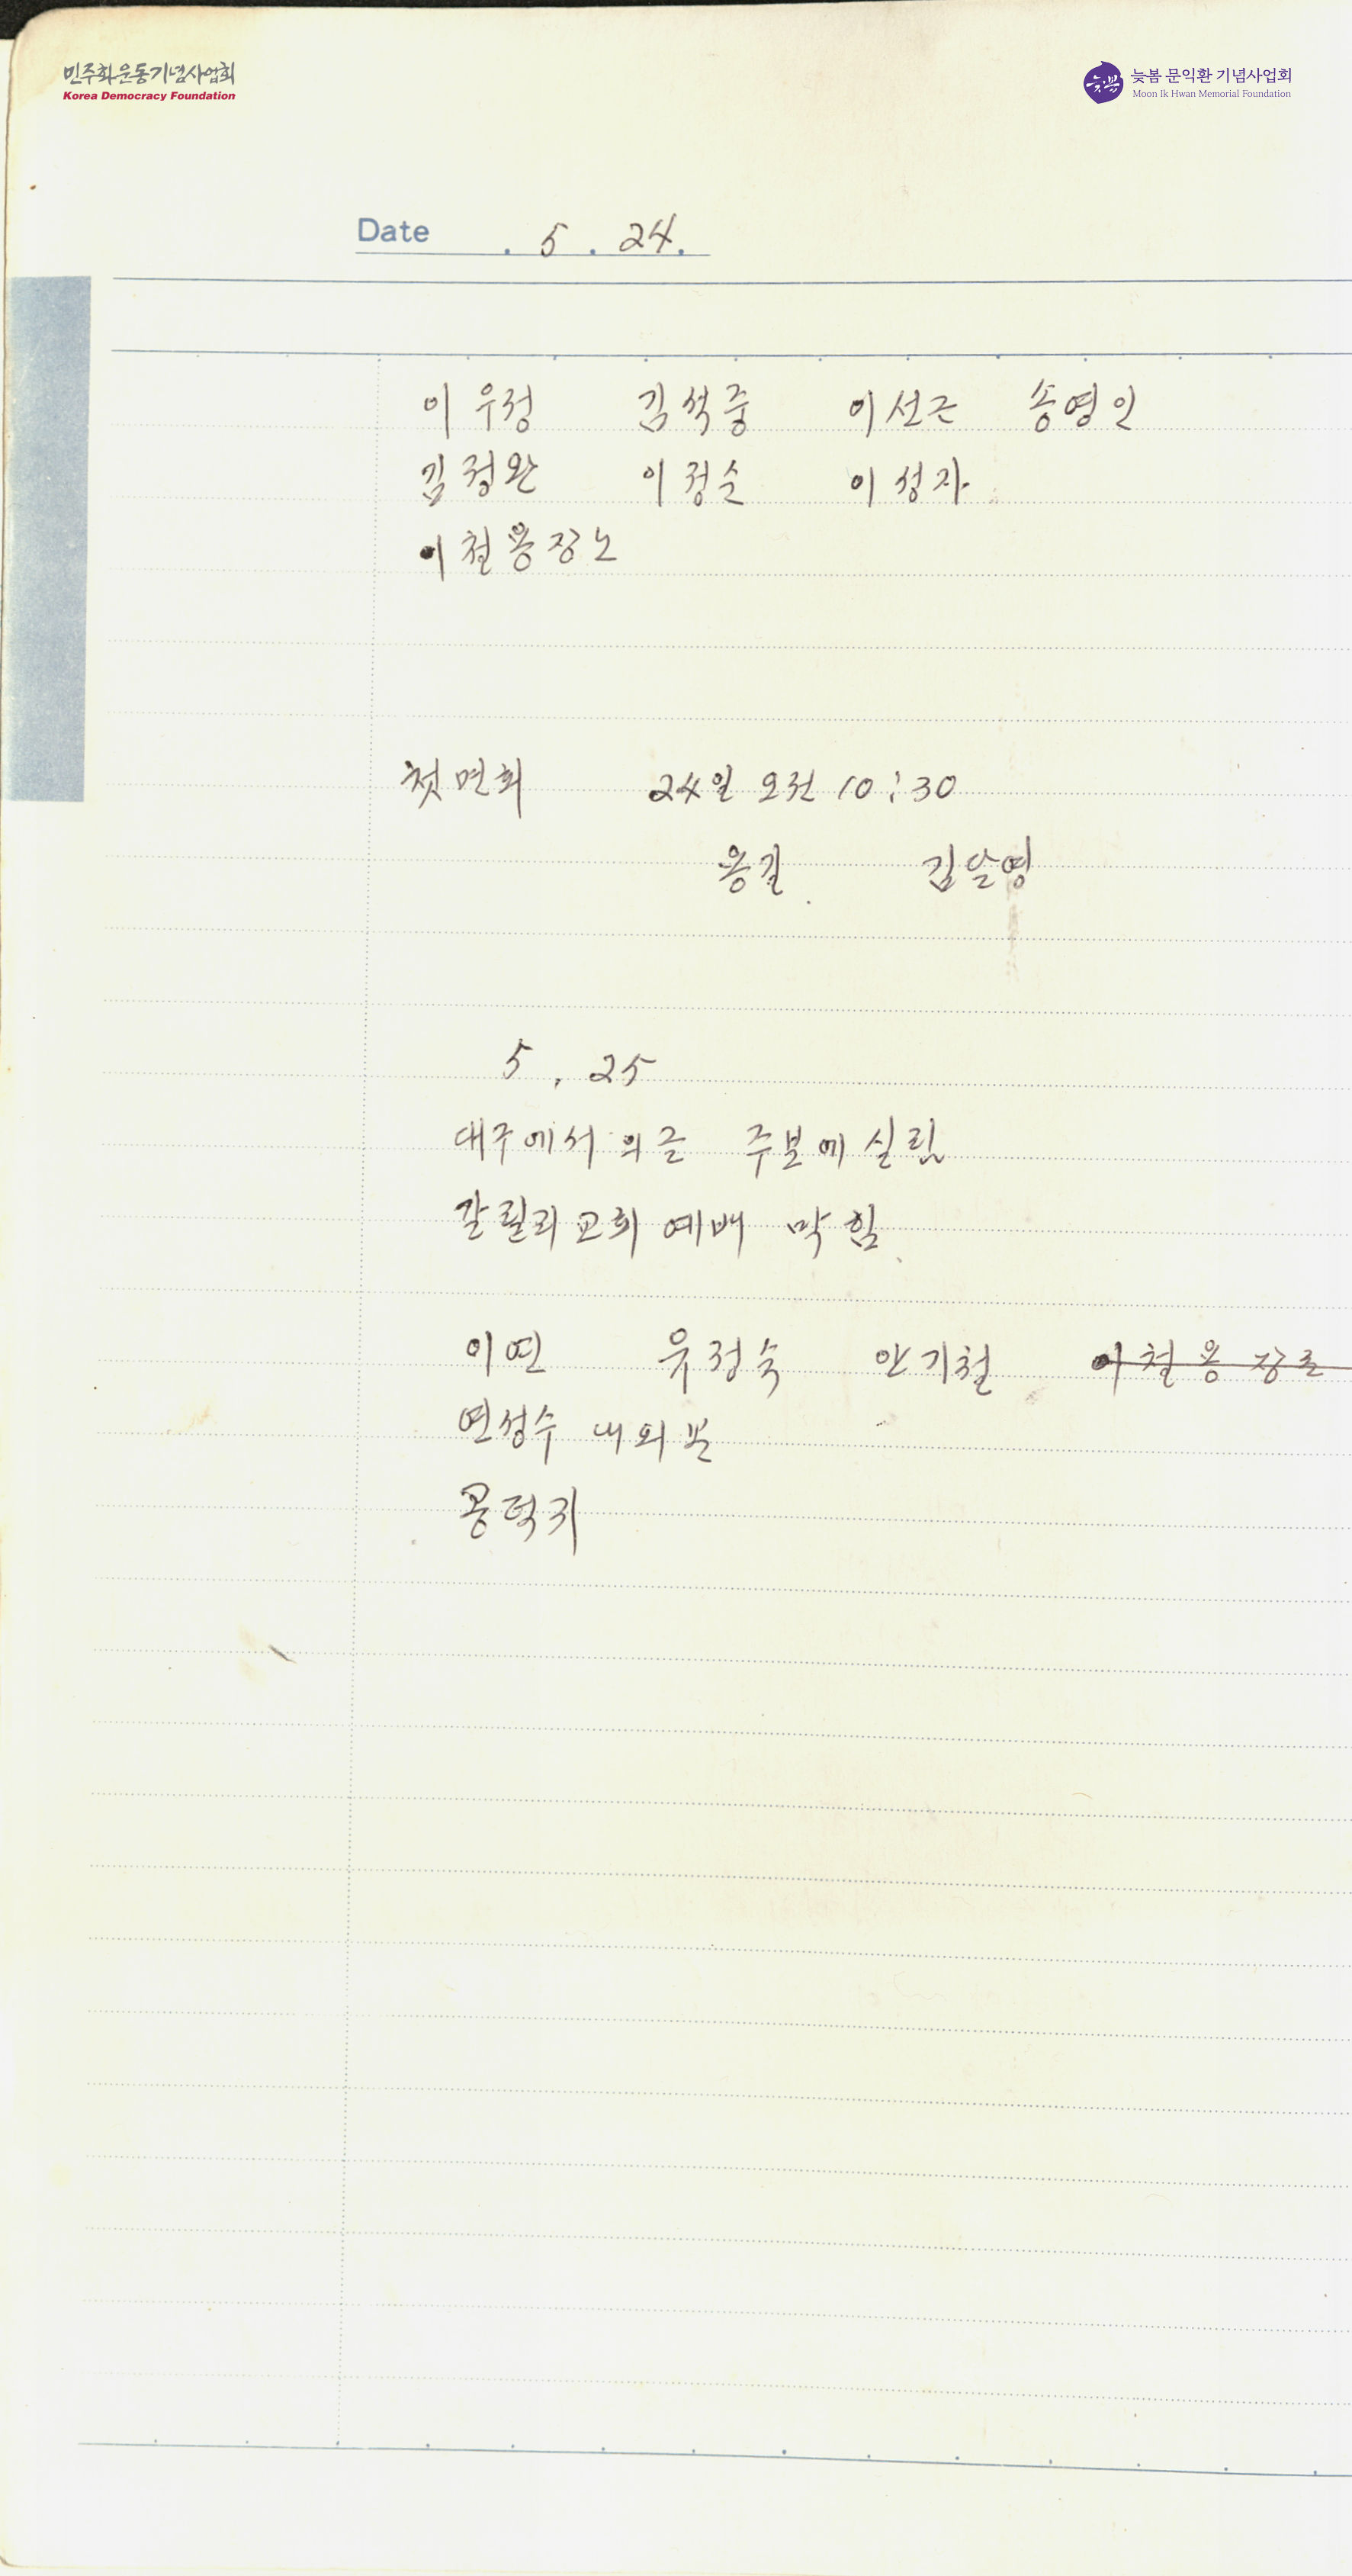 민주화운동기념사업회
Korea Democracy Foundation
늦봄 늦봄 문익환 기념사업회
Moon Ik Hwan Memorial Foundation
Date . 5 . 24.
이우정 김석중 이선근 송영인
김정완 이정순 이성자
이철용장노
첫면회 24일 오전 10:30
용길 김달영
5. 25
대구에서의글 주보에 실림
갈릴리교회 예배 막힘
이연 유정숙 안기철 이철용장로
연성수 내외분
공덕귀